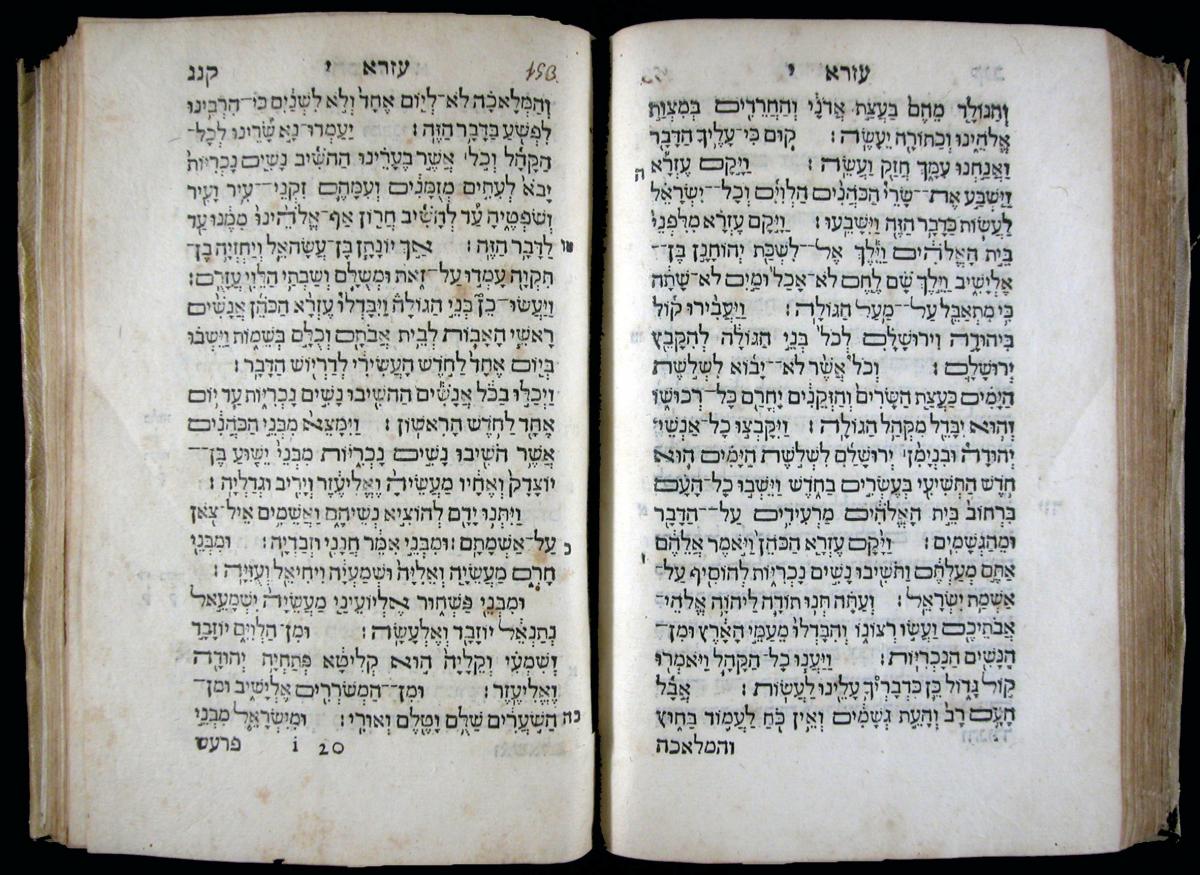 עזרא י
והנולד מהם בעצת אדני והחרדים במצות
אלהינו וכתורה יעשה: קום כי־עליך הדבר
ואנחנו עמך חזק ועשה: ויקם עזרא
ה
וישבע את־שרי הכהנים הלוים וכל־ישראל
לעשות כדבר הזה וישבעו: ויקם עזרא מלפני
בית האלהים וילך אל־לשכת יהוחנן בן־
אלישיב וילך שם לחם לא־אכל ומים לא־שתה
כי מתאבל על־מעל הגולה: ויעבירו קול
ביהודה וירושלם לכל בני הגולה להקבץ
ירושלם: וכל אשר לא־יבוא לשלשת
הימים כעצת השרים והזקנים יחרם כל־רכושו
והוא יבדל מקהל הגולה: ויקבצו כל־אנשי
יהודה ובנימן ירושלם לשלשת הימים הוא
חדש התשיעי בעשרים בחדש וישבו כל־העם
ברחוב בית האלהים מרעידים על־הדבר
ומהגשמים: ויקם עזרא הכהן ויאמר אלהם
י
אתם מעלתם ותשיבו נשים נכריות להוסיף על־
אשמת ישראל: ועתה תנו תודה ליהוה אלהי־
אבתיכם ועשו רצונו והבדלו מעמי הארץ ומן־
הנשים הנכריות: ויענו כל־הקהל ויאמרו
קול גדול כן כדבריך עלינו לעשות: אבל
העם רב והעת גשמים ואין כח לעמוד בחוץ
והמלאכה
קנג עזרא י 153
והמלאכה לא־ליום אחד ולא לשנים כי־הרבינו
לפשע בדבר הזה: יעמדו־נא שרינו לכל־
הקהל וכל אשר בערינו ההשיב נשים נכריות
יבא לעתים מזמנים ועמהם זקני־עיר ועיר
ושפטיה עד להשיב חרון אף־אלהינו ממנו עד
לדבר הזה: אך יונתן בן־עשהאל ויחזיה בן־
טו
תקוה עמדו על־זאת ומשלם ושבתי הלוי עזרם:
ויעשו־כן בני הגולה ויבדלו עזרא הכהן אנשים
ראשי האבות לבית אבתם וכלם בשמות וישבו
ביום אחד לחדש העשירי לדריוש הדבר:
ויכלו בכל אנשים ההשיבו נשים נכריות עד יום
אחד לחדש הראשון: וימצא מבני הכהנים
אשר השיבו נשים נכריות מבני ישוע בן־
יוצדק ואחיו מעשיה ואליעזר ויריב וגדליה:
ויתנו ידם להוציא נשיהם ואשמים איל־צאן
על־אשמתם: ומבני אמר חנני וזבדיה: ומבני
כ
חרם מעשיה ואליה ושמעיה ויחיאל ועזיה:
ומבני פשחור אליועיני מעשיה ישמעאל
נתנאל יוזבד ואלעשה: ומן־הלוים יוזבד
ושמעי וקליה הוא קליטא פתחיה יהודה
ואליעזר: ומן־המשררים אלישיב ומן־
השערים שלם וטלם ואורי: ומישראל מבני
כה
פרעש i 20